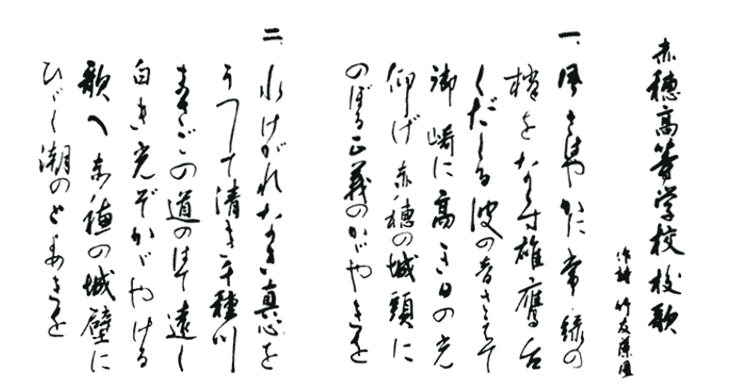 赤穂高等学校校歌
作詩 竹友藻風
一、風さはやかに常緑の
梢をならす雄鷹台
くだくる波の音さえて
御崎に高き日の光
仰げ赤穂の城頭に
のぼる正義のかゞやきを
二、水けがれなき真心を
うつして清き千種川
まさごの道のはて遠く
白き光ぞかゞやける
歌へ赤穂の城壁に
ひゞく潮の